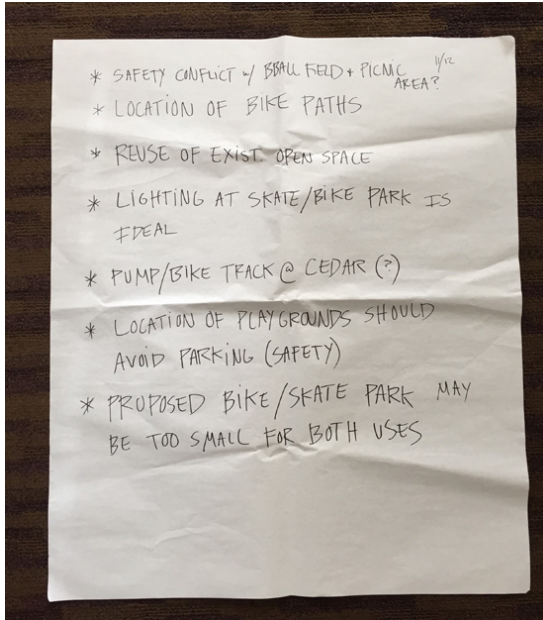 11/12
* SAFETY CONFLICT w/ BBALL FIELD + PICNIC
AREA?
* LOCATION OF BIKE PATHS
* REUSE OF EXIST. OPEN SPACE
* LIGHTING AT SKATE/BIKE PARK IS
IDEAL
* PUMP/BIKE TRACK @ CEDAR (?)
* LOCATION OF PLAYGROUNDS SHOULD
AVOID PARKING (SAFETY)
* PROPOSED BIKE/SKATE PARK MAY
BE TOO SMALL FOR BOTH USES